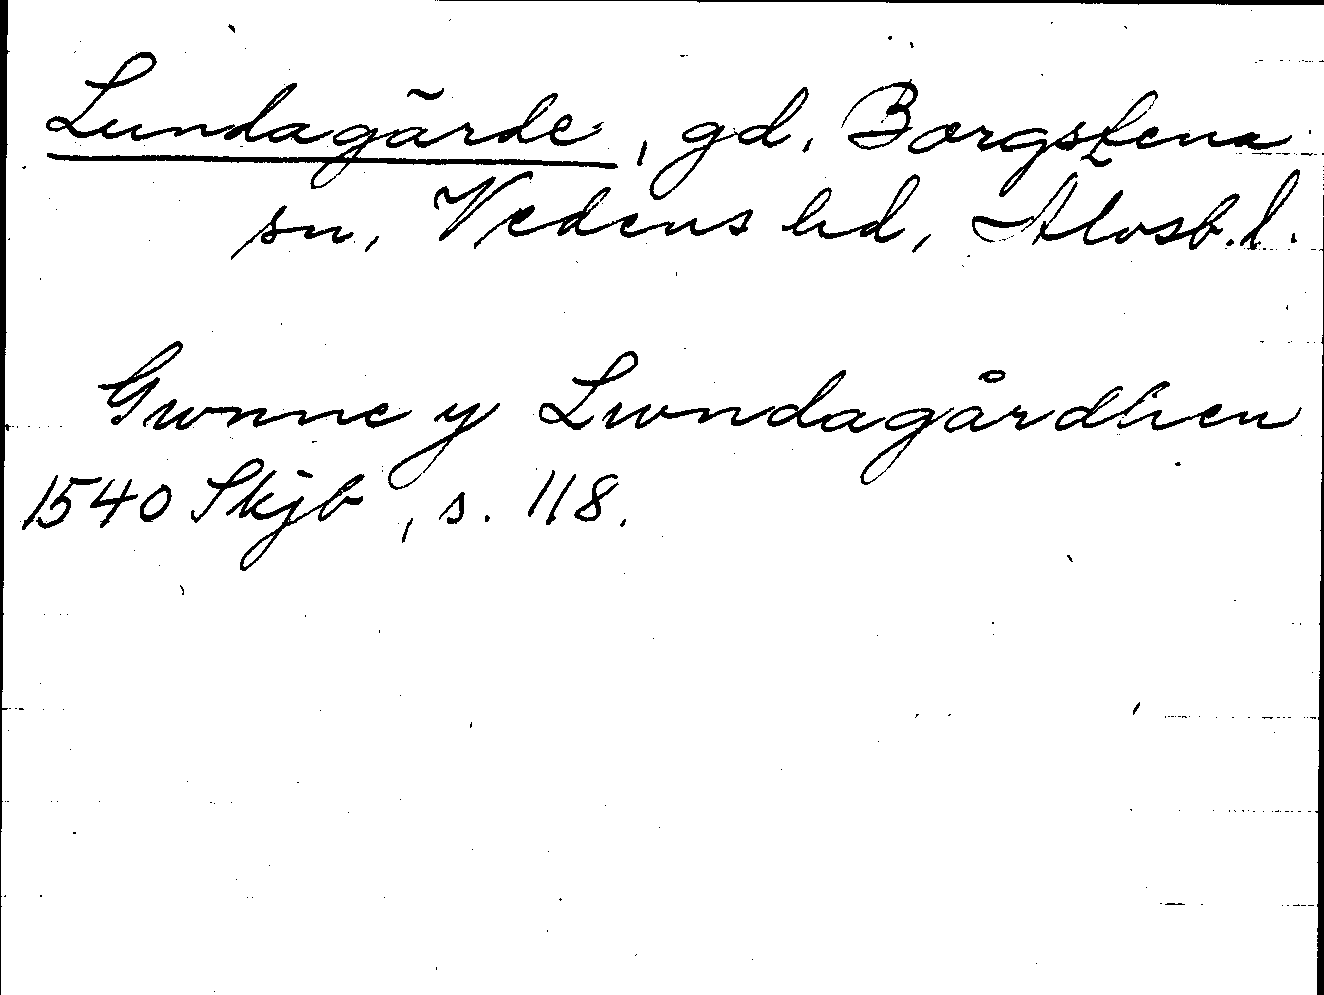 Lundagärde, gd, Borgstena
sn, Vedens hd, Älvsb.l.
Gwnne y Lwndagårdhen
1540 Skjb, s. 118.